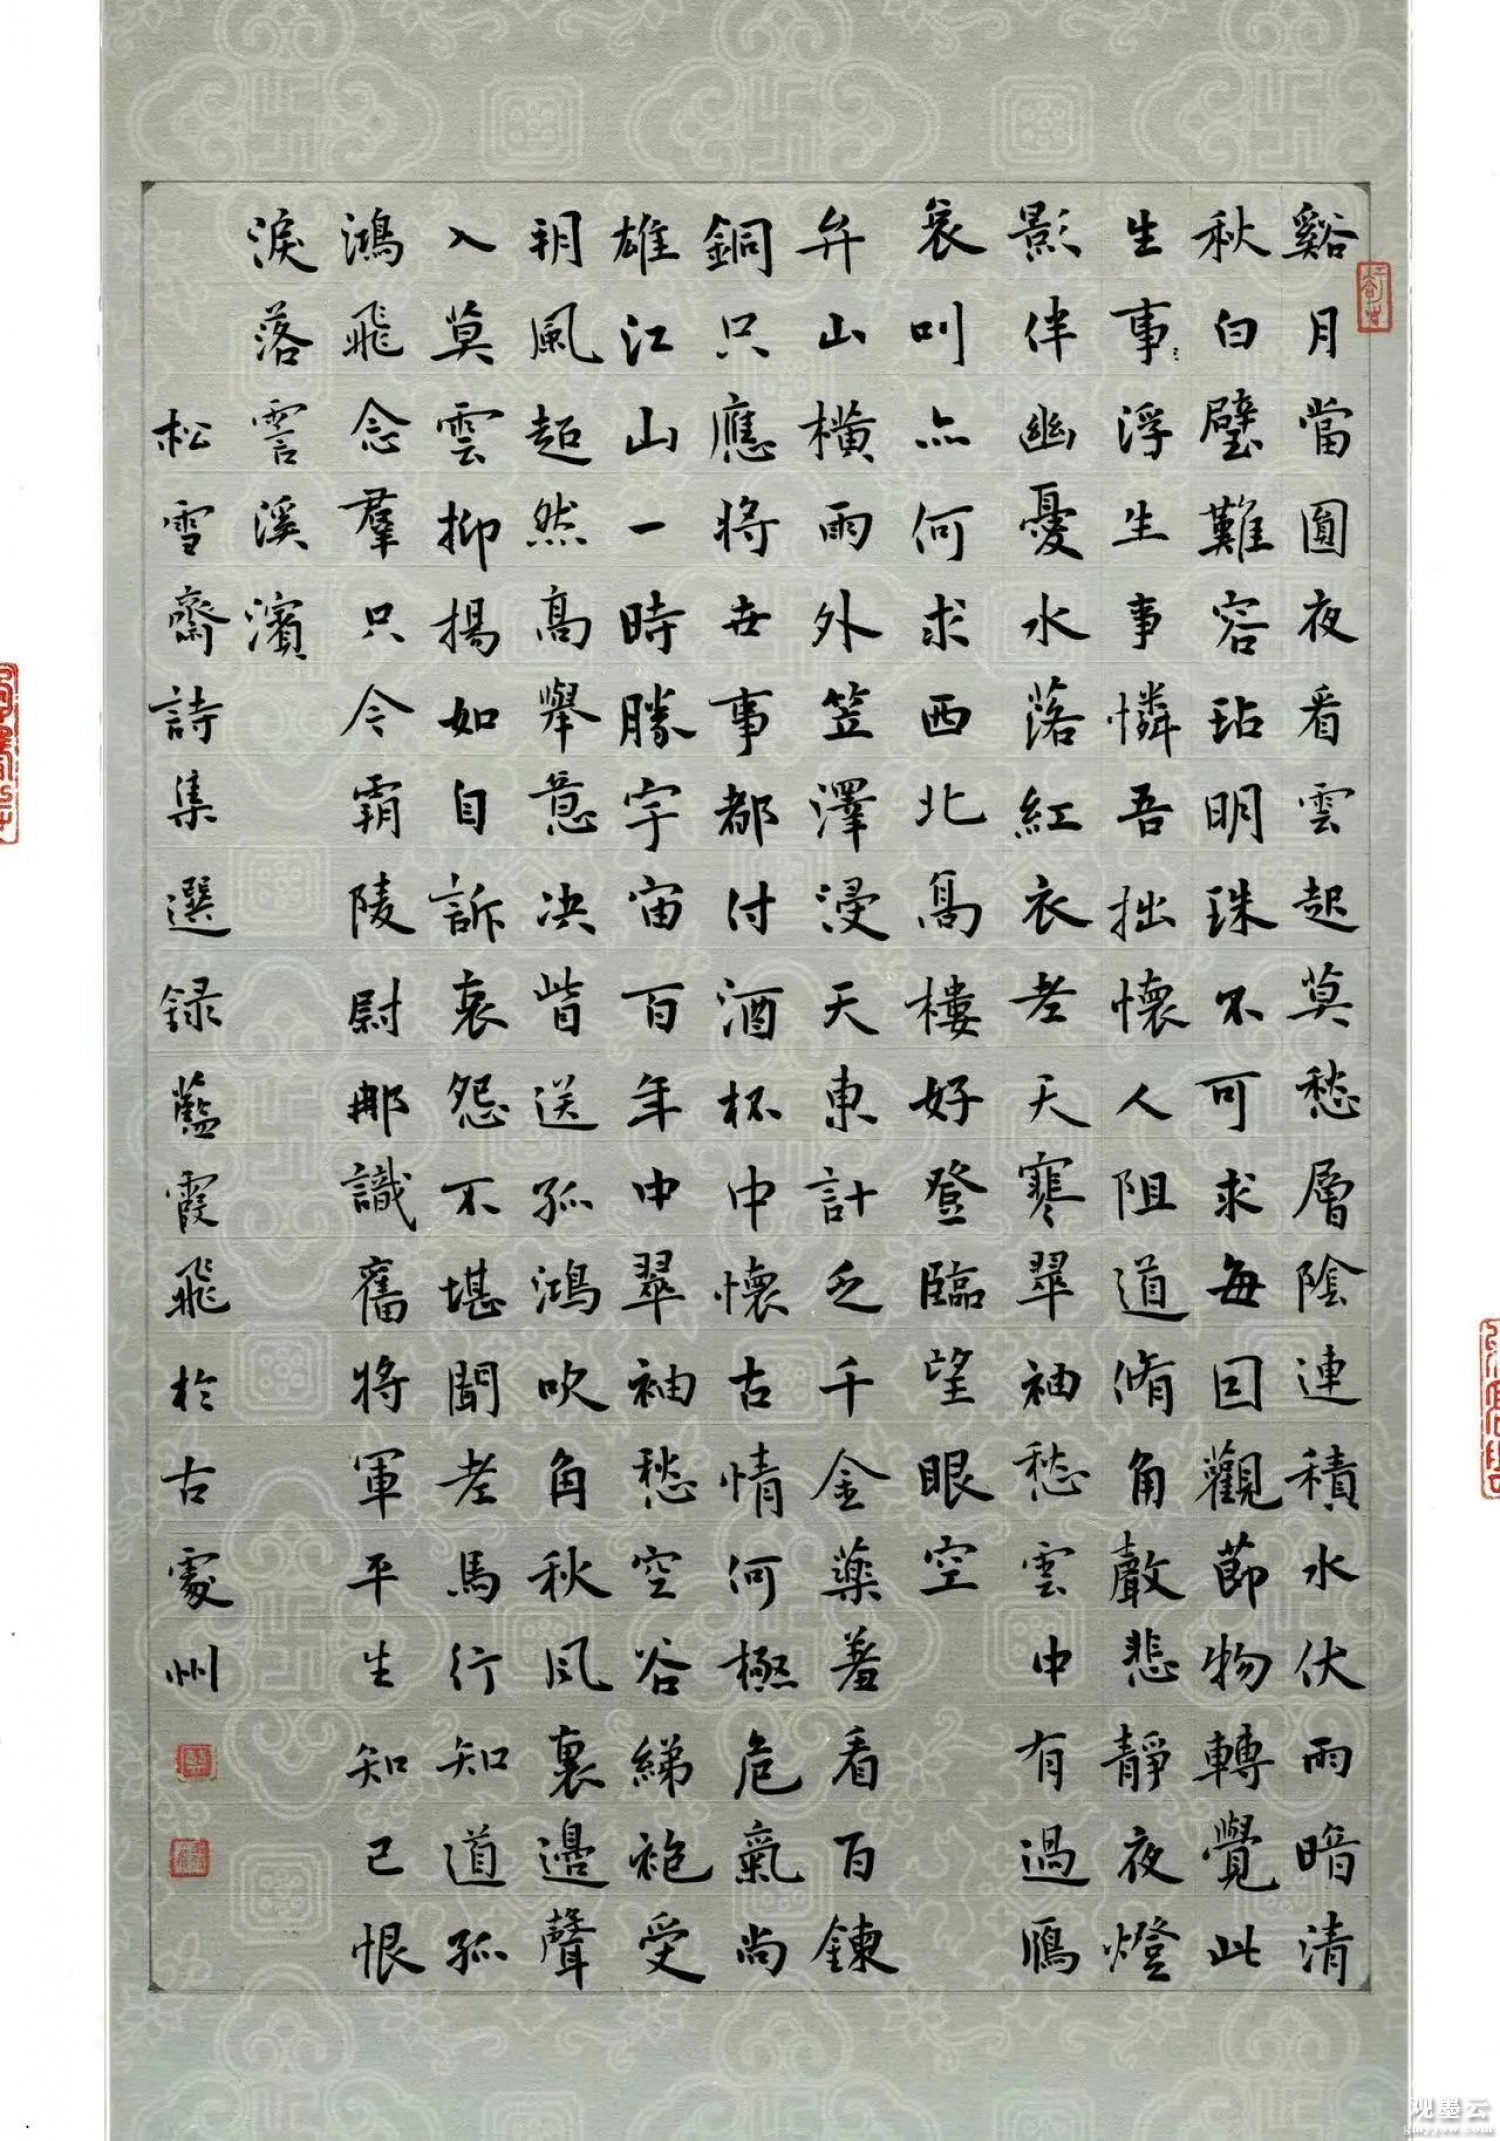 谿月當圓夜看雲起莫愁層陰連積水伏雨暗清
秋白璧難容玷明珠不可求每回觀節物轉覺此
生事浮生事憐吾拙懷人阻道脩角聲悲靜夜燈
影伴幽憂水落紅衣老天寒翠袖愁雲中有過鴈
哀叫亦何求西北高樓好登臨望眼空
弁山橫雨外笠澤浸天東計乏千金藥羞看百鍊
銅只應將世事都付酒杯中懷古情何極危氣尚
雄江山一時勝宇宙百年中翠袖愁空谷綈袍受
朔風超然高舉意決眥送孤鴻吹角秋風裏邊聲
入莫雲抑揚如自訴哀怨不堪聞老馬行知道孤
鴻飛念羣只今霸陵尉那識舊將軍平生知己恨
淚落霅溪濱
松雪齋詩集選録藍霞飛於古處州
观墨云
gmyyow.com